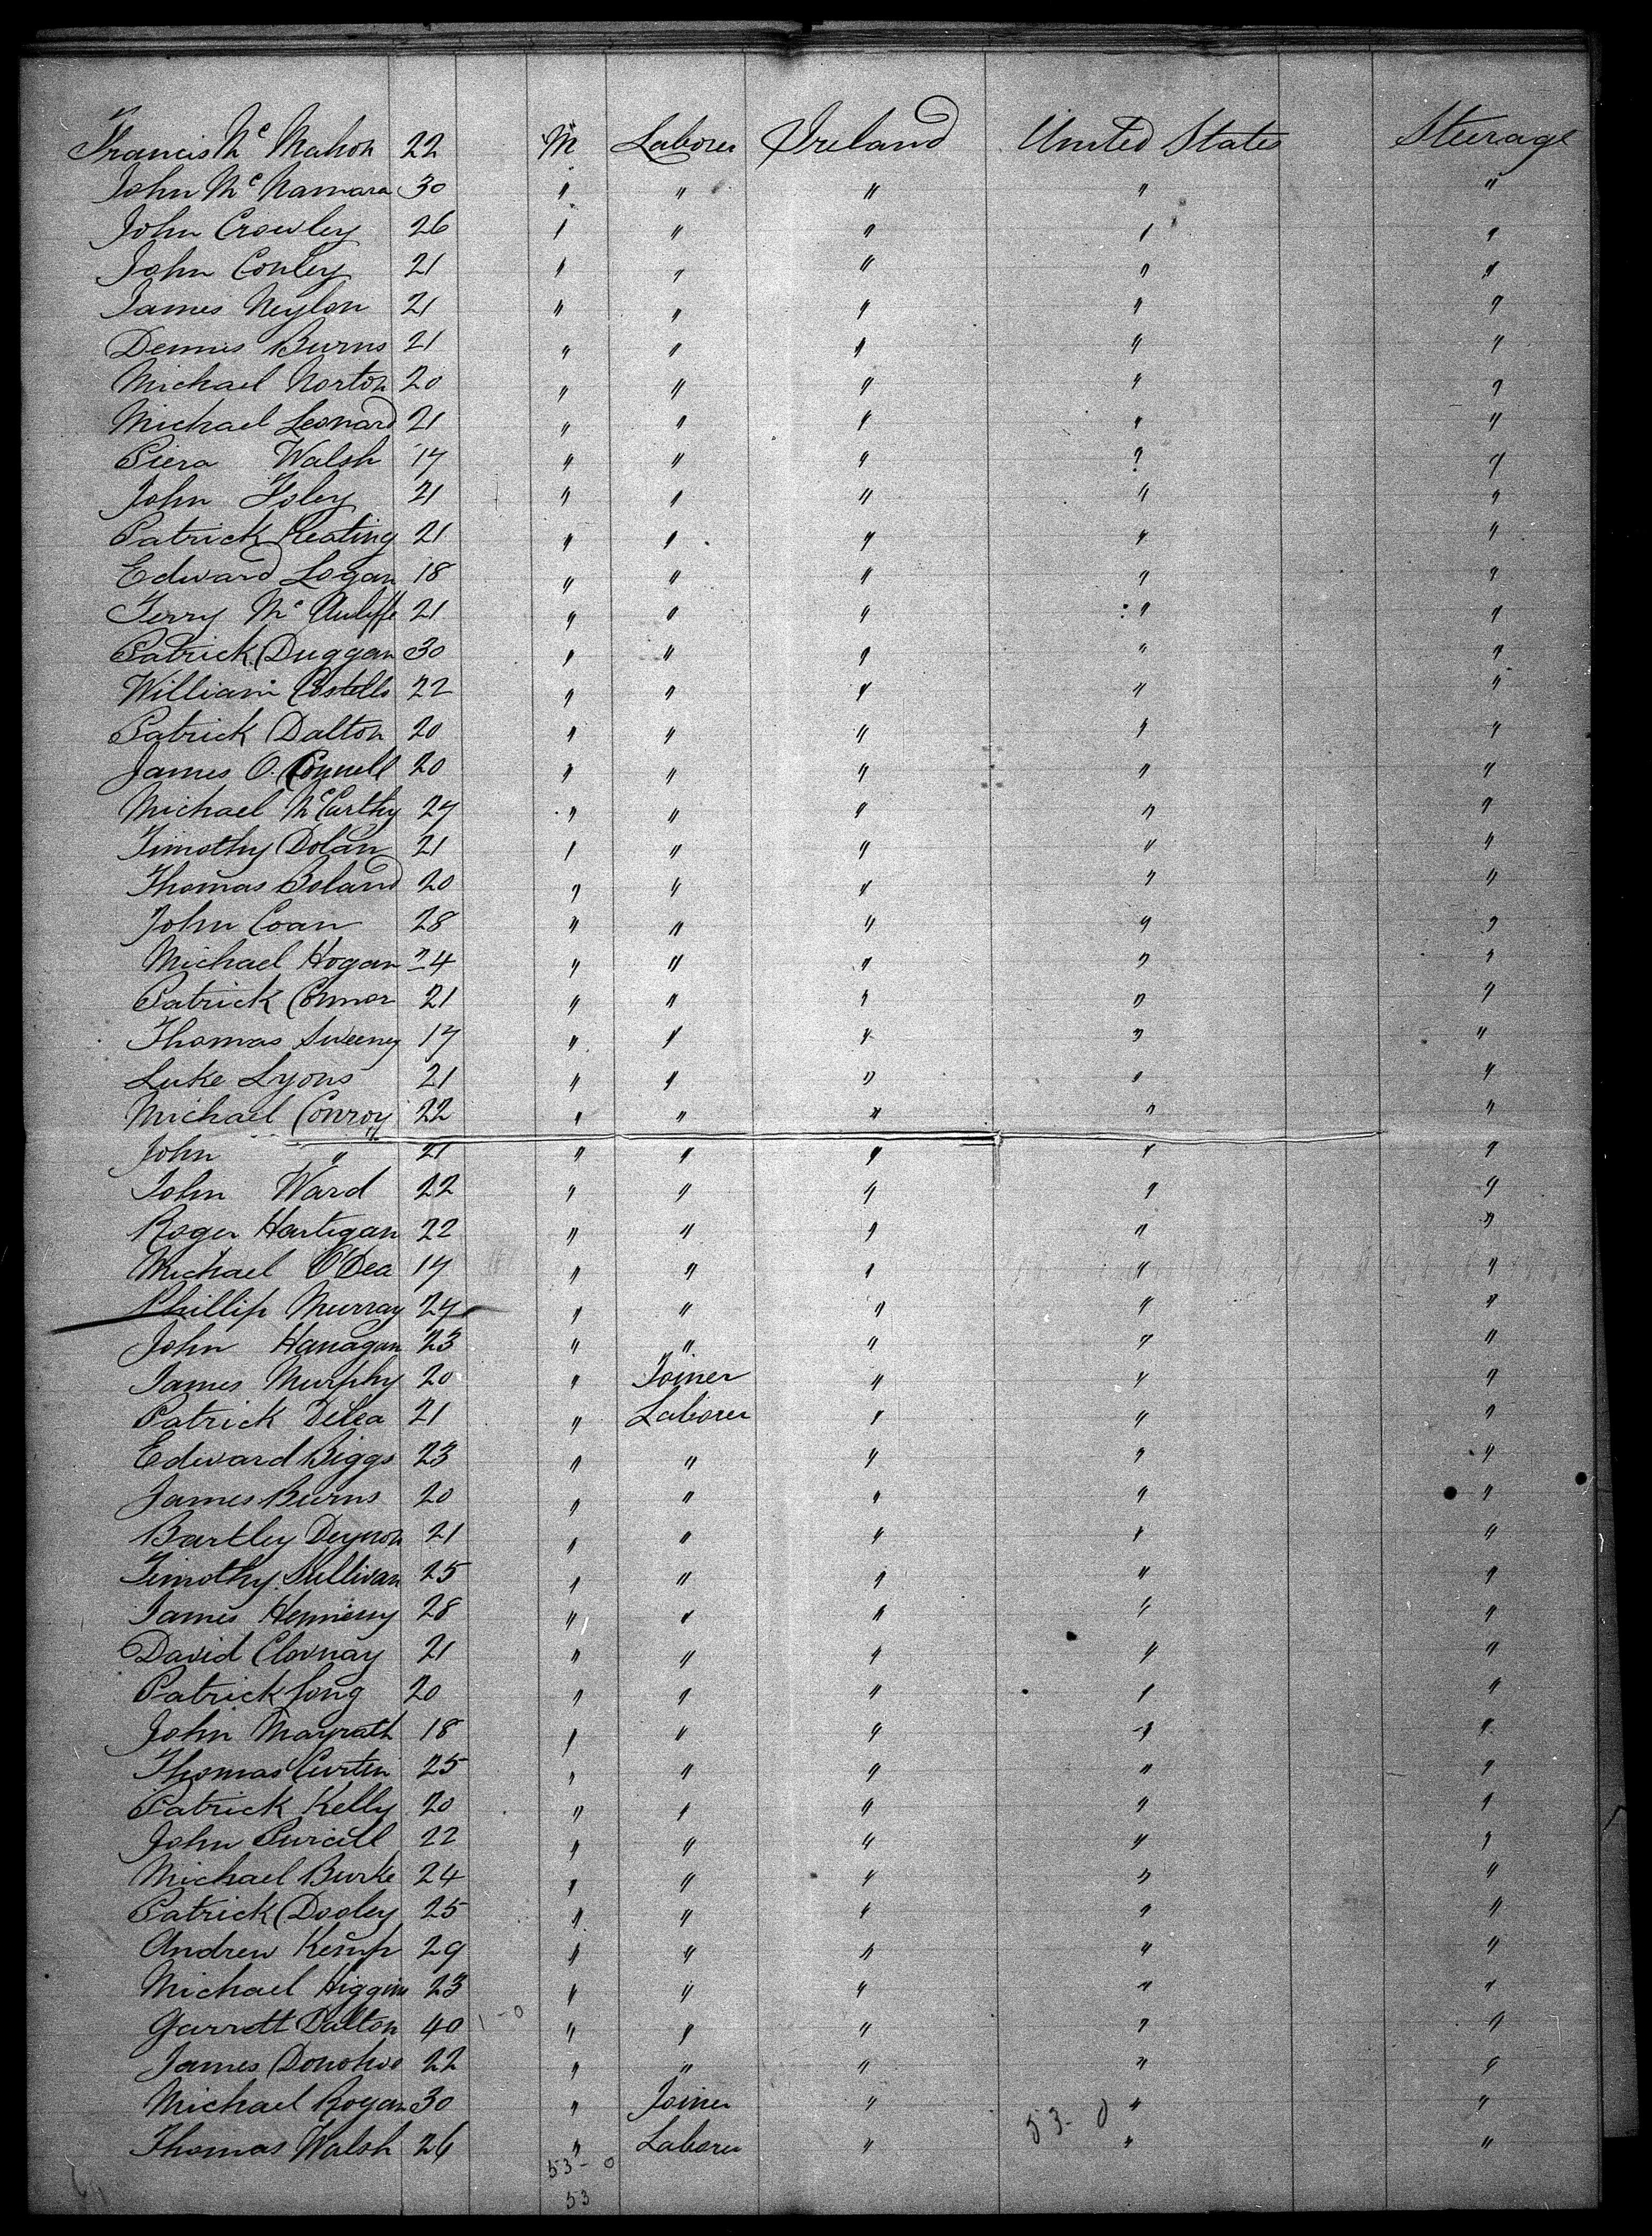 Francis Mc Mahon 22 M Laborer Ireland United States Steerage
John Mc Namara 30 " " " " "
John Crowley 26 " " " " "
John Conley 21 " " " " "
James Neylon 21 " " " " "
Dennis Burns 21 " " " " "
Michael Norton 20 " " " " "
Michael Leonard 21 " " " " "
Piera Walsh 17 " " " " "
John Foley 21 " " " " "
Patrick Keating 21 " " " " "
Edward Logan 18 " " " " "
Terry Mc Auliffe 21 " " " " "
Patrick Duggan 30 " " " " "
William Costello 22 " " " " "
Patrick Dalton 20 " " " " "
James O. Connell 20 " " " " "
Michael McCarthy 27 " " " " "
Timothy Dolan 21 " " " " "
Thomas Boland 20 " " " " "
John Coan 28 " " " " "
Michael Hogan 24 " " " " "
Patrick Connor 21 " " " " "
Thomas Sweeney 17 " " " " "
Luke Lyons 21 " " " " "
Michael Conroy 22 " " " " "
John " 21 " " " " "
John Ward 22 " " " " "
Roger Hartigan 22 " " " " "
Michael O'Dea 17 " " " " "
Phillip Murray 27 " " " " "
John Hanagan 23 " " " " "
James Murphy 20 " Joiner " " "
Patrick Delea 21 " Laborer " " "
Edward Biggs 23 " " " " "
James Burns 20 " " " " "
Bartley Deynon 21 " " " " "
Timothy Sullivan 25 " " " " "
James Hennessy 28 " " " " "
David Clovnay 21 " " " " "
Patrick Long 20 " " " " "
John Mayrath 18 " " " " "
Thomas Curtin 25 " " " " "
Patrick Kelly 20 " " " " "
John Purcell 22 " " " " "
Michael Burke 24 " " " " "
Patrick Dooley 25 " " " " "
Andrew Kemp 29 " " " " "
Michael Higgins 23 " " " " "
Garrett Dalton 40 " " " " "
James Donohoe 22 " " " " "
Michael Rogan 30 " Joiner " " "
Thomas Walsh 26 " Laborer " " "
53 - 0 53 - 0
53